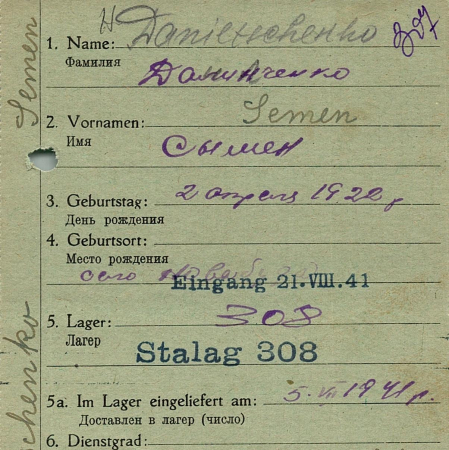 1. Name: Daniltschenko
Фамилия
Данилченко
2. Vornamen: Semen
Имя
Сымен
3. Geburtstag: 2 апреля 1922 г
День рождения
4. Geburtsort:
Место рождения
село
Eingang 21.VIII.41
5. Lager: 308
Лагер
Stalag 308
5a. Im Lager eingeliefert am: 5. VII 1941 г.
Доставлен в лагер (число)
6. Dienstgrad:
Semen
chenko